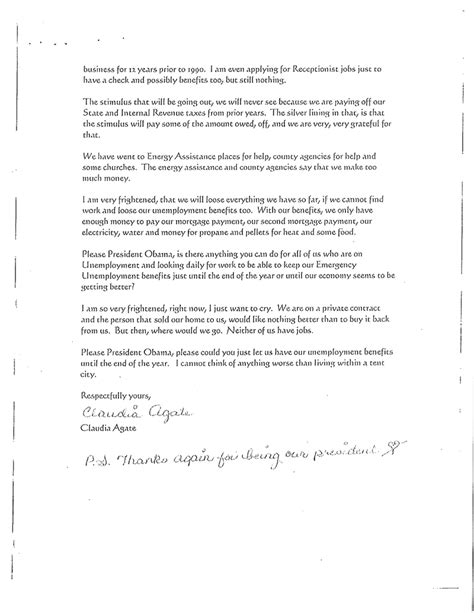 business for 12 years prior to 1990. I am even applying for Receptionist jobs just to
have a check and possibly benefits too, but still nothing.
The stimulus that will be going out, we will never see because we are paying off our
State and Internal Revenue taxes from prior years. The silver lining in that, is that
the stimulus will pay some of the amount owed, off, and we are very, very grateful for
that.
We have went to Energy Assistance places for help, county agencies for help and
some churches. The energy assistance and county agencies say that we make too
much money.
I am very frightened, that we will loose everything we have so far, if we cannot find
work and loose our unemployment benefits too. With our benefits, we only have
enough money to pay our mortgage payment, our second mortgage payment, our
electricity, water and money for propane and pellets for heat and some food.
Please President Obama, is there anything you can do for all of us who are on
Unemployment and looking daily for work to be able to keep our Emergency
Unemployment benefits just until the end of the year or until our economy seems to be
getting better?
I am so very frightened, right now, I just want to cry. We are on a private contract
and the person that sold our home to us, would like nothing better than to buy it back
from us. But then, where would we go. Neither of us have jobs.
Please President Obama, please could you just let us have our unemployment benefits
until the end of the year. I cannot think of anything worse than living within a tent
city.
Respectfully yours,
Claudia Agate
Claudia Agate
P.S. Thanks again for being our president